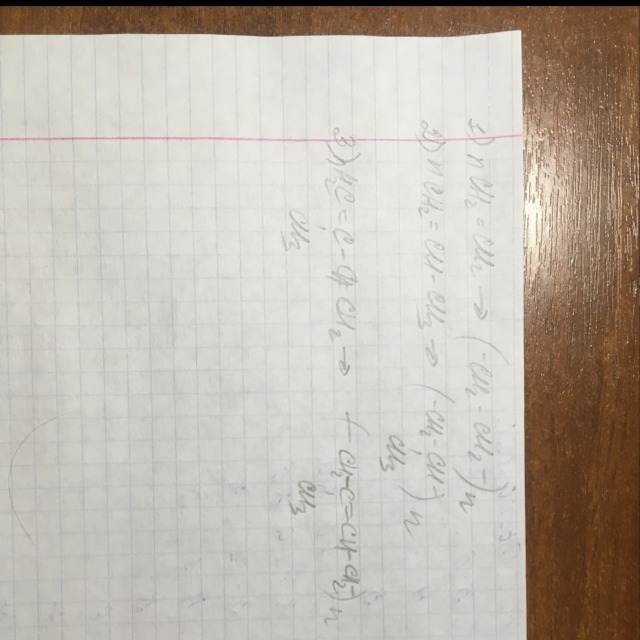 1) n CH₂ = CH₂ → (-CH₂ - CH₂ -)n
2) n CH₂ = CH - CH₃ → (-CH₂ - CH-)n
CH₃
= C - CH = CH₂ → (- CH₂ - C = CH - CH₂ -)n
CH₃
CH₃